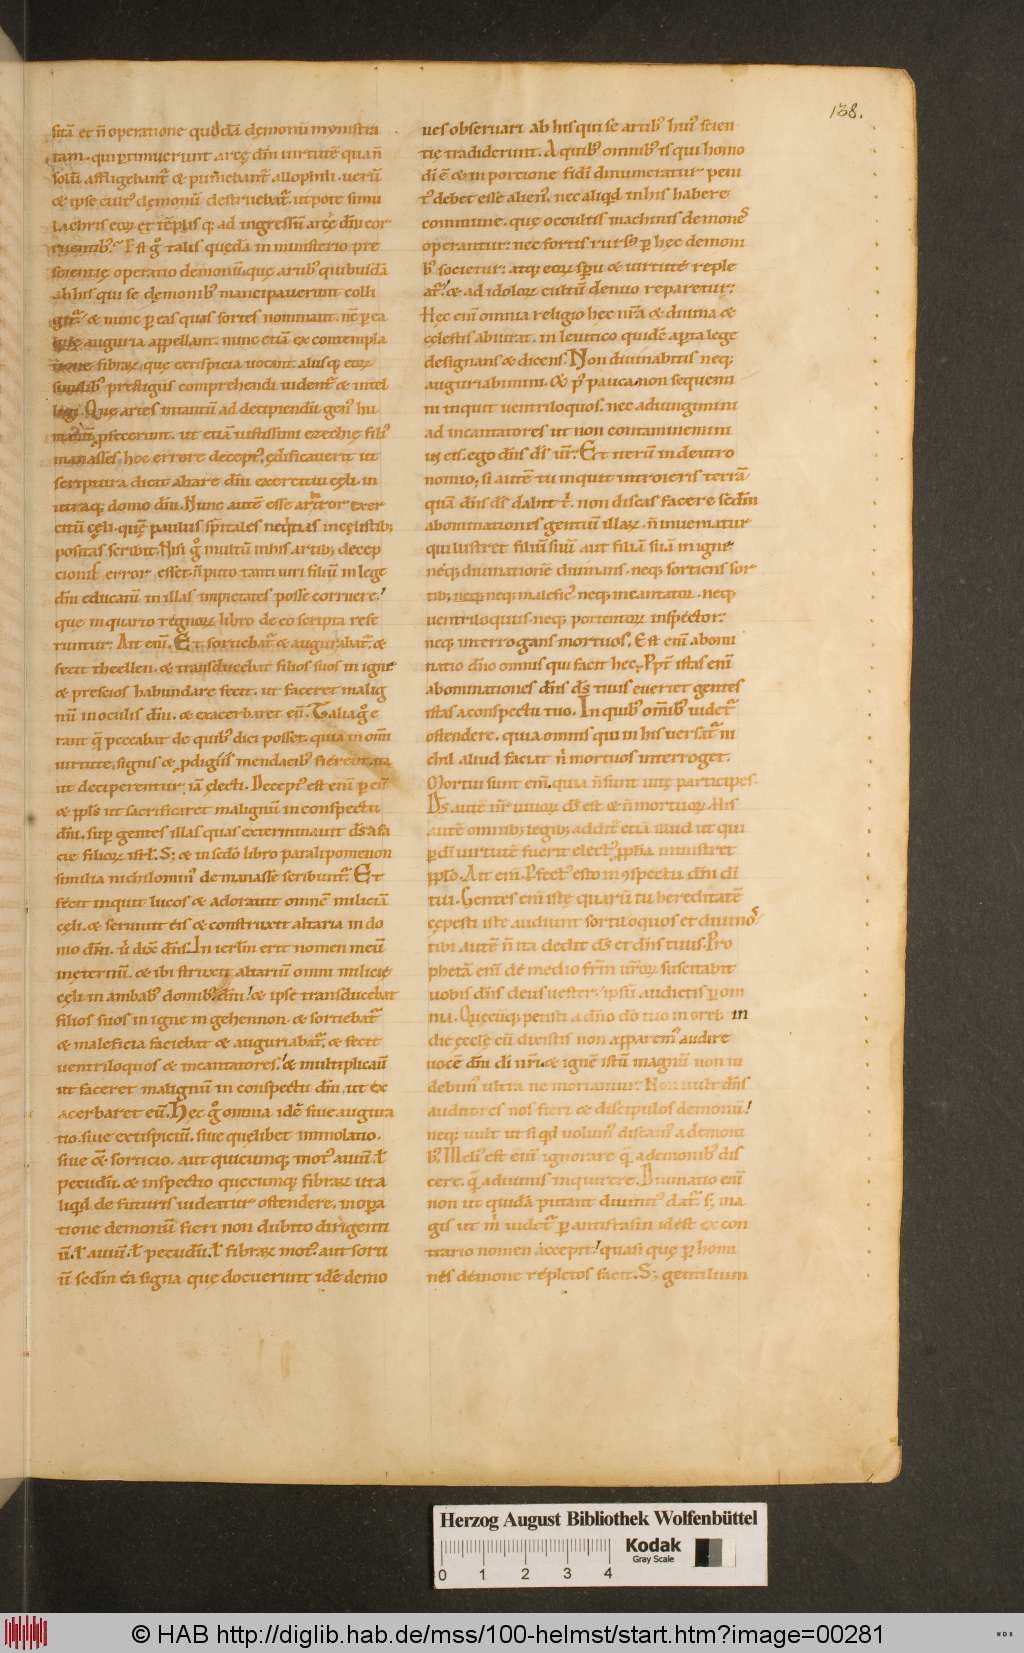 138.
sitā et n̄ operatione quadā dęmonū mynistra
tam. qui ptimuerunt arcę dn̄i uirtutē qua n̄
solū affligebant᷑ & puniebant᷑ allophili. uerū
& ipse cult᷒ dęmonū destruebat᷑. utpote simu
lachris eoꝝ et tēplis q; ad ingressū arcę dn̄i cor
ruentib᷒. Est gͦ talis quedā in ministerio pre
scientię operatio demonū. quę artib᷒ quibusdā
ab his qui se dęmonib᷒ mancipauerunt colli
git᷑. & nunc ꝑ eas quas sortes nominant. nc̄ ꝑ ea
quę auguria appellant. nunc etiā ex contempla
tione fibraꝝ, quę extispicia uocant. aliisq; eoꝝ
similib᷒ prestigiis comprehendi uident᷑ & intel
legi. Quę artes intantū ad decipiendū gen᷒ hu
manū ꝓfecerunt. ut etiā iustissimi ezechię fili᷒
manasses, hec errore decept᷒, ędificauerit ut
scriptura dicit altare dn̄i exercitui cęli. in
utraq; domo dn̄i. Nunc autē esse arbitror exer
citū cęli. quę̄ paulus sp̄itales neqtias in cęlestib;
positas scribit. Nisi gͦ multū in his artib; decep
cionis error esset. n̄ puto tanti uiri filiū in lege
dn̄i educatū in illas impietates posse corruere.
que in quarto regnoꝝ libro de eo scripta refe
runtur. Ait eni᷒. Et sortiebat᷑ & augurabat᷑. &
fecit theellen. & transducebat filios suos in igne
& prescios habundare fecit. ut faceret malig
nū in oculis dn̄i. & exacerbaret eū. Talia gͦ e
rant q̄ peccabat de quib᷒ dici posset. quia in om̄i
uirtute, signis & ꝓdigiis mendacib᷒ fierent, ita
ut deciperentur iā electi. Decept᷒ est eni᷒ ꝑ eū
& ppls ut sacrificaret malignū in conspectu
dn̄i. sup gentes illas quas exterminauit ds̄ a fa
cie filioꝝ isrł. S; & in scd̄o libro paralipomenon
similia nichilomin᷒ de manasse scribunt᷑. Et
fecit inquit lucos & adorauit omnē miliciā
cęli. & seruiuit eis & construxit altaria in do
mo dn̄i. ŭ dixe dn̄s. In ierl̄m erit nomen meū
inęternū. & ibi struxit altariū omni milicię
cęli in ambab᷒ domib᷒ dn̄i. & ipse transducebat
filios suos in igne in gehennon. & sortiebat᷑
& maleficia faciebat & auguriabat᷑. & fecit
uentriloquos & incantatores. & multiplicauit
ut faceret malignū in conspectu dn̄i. ut ex
acerbaret eū. Hęc gͦ omnia idē siue augura
tio. siue extispiciū. siue quęlibet immolatio.
siue &ē sorticio. aut quicumq; mot᷒ auiū. ł
pecudū. & inspectio quęcumq; fibraꝝ ut a
liqd de futuris uideatur ostendere, in opa
tione demonū fieri non dubito dirigenti
ū. ł auiū. ł pecudū. ł fibraꝝ mot᷒ aut sorti
ū sedm ea signa quę docuerunt idē demo
nes obseruari ab his qui se artib᷒ hui᷒ scien
tię tradiderunt. A quib᷒ omnib᷒ is qui homo
dī ē & in portione fidī dinumeratur peni
t᷒ debet esse alien᷒. nec aliqd in his habere
commune. quę occultis machinis demones
operantur. nec fortis rursū ꝑ hęc demoni
b᷒ societur. atq; eoꝝ sp̄u & uirtute reple
at᷑. & ad idoloꝝ cultū denuo reparetur.
Hęc eni᷒ omnia religio hęc nr̄a & diuina &
cęlestis abiurat. in leuitico quidē apta lege
designans & dicens. Non diuinabitis neq;
auguriabimini. Et p᷒ pauca. non sequemi
ni inquit uentriloquos. nec adiungimini
ad incantatores ut non contaminemini
in eis. ego dn̄s ds̄ ur̄. Et iterū in deutro
nomio, si autē tu inquit introieris terrā
quā dn̄s ds̄ dabit t̄. non discas facere scdm
abominationes gentiū illaꝝ. n̄ inueniatur
qui lustret filiū suū. aut filiā suā in igne
neq; diuinationē diuinans. neq; sortiens sor
tib; neq; neq; malefic᷒. neq; incantator. neq;
uentriloquus. neq; portentoꝝ inspector.
neq; interrogans mortuos. Est eni᷒ abomi
natio dn̄o omnis qui facit hęc. Ppt̄ istas eni᷒
abominationes dn̄s ds̄ tuus euertet gentes
istas a conspectu tuo. In quib᷒ omib᷒ uidet᷑
ostendere. quia omnis qui in his uersat᷑ ni
chil aliud faciat n̄ mortuos interroget.
Mortui sunt eni᷒. quia n̄ sunt uitę participes.
Ds̄. autē nr̄ uiuoꝝ ds̄ est & n̄ mortuoꝝ. His
autē omnib; legib; addit᷑ etiā illud ut qui
ꝑ dī uirtutē fuerit elect᷒ ꝓph̄a ministret
pplo. Ait eni᷒. Pfect᷒ esto in 9spectu dn̄i dī
tui. Gentes eni᷒ istę quarū tu hereditatē
cępisti iste audiunt sortiloquos et diuinos.
tibi autē n̄ ita dedit ds̄ et dn̄s tuus. Pro
phetā eni᷒ de medio frm̄ ur̄oꝝ suscitabit
uobis dn̄s deus uester. ipsū audietis ꝑ om
nia. Quęcūq; petisti a dn̄o dō tuo in oreb in
die ęcclę cū dixistis non apparem᷒ audire
uocē dn̄i dī nr̄i. & ignē istū magnū non ui
debim᷒ ultra ne moriamur. Non uult dn̄s
auditores nos fieri & discipulos demonū.
neq; uult ut si qd uolum᷒ discam᷒ a demoni
b᷒. Meli᷒ est eni᷒ ignorare q̄ a demonib᷒ dis
cere. q̄ a diuinis inquirere. Diuinatio eni᷒
non ut quidā putant diuinit᷒ dat᷑. s; ma
gis ut m̄ uidet᷑ ꝑ antifrasin idest ex con
trario nomen accepit. quasi quę ꝑ homi
nes demone repletos facit. S; gentilium
Herzog August Bibliothek Wolfenbüttel
Kodak
Gray Scale
0 1 2 3 4
© HAB http://diglib.hab.de/mss/100-helmst/start.htm?image=00281